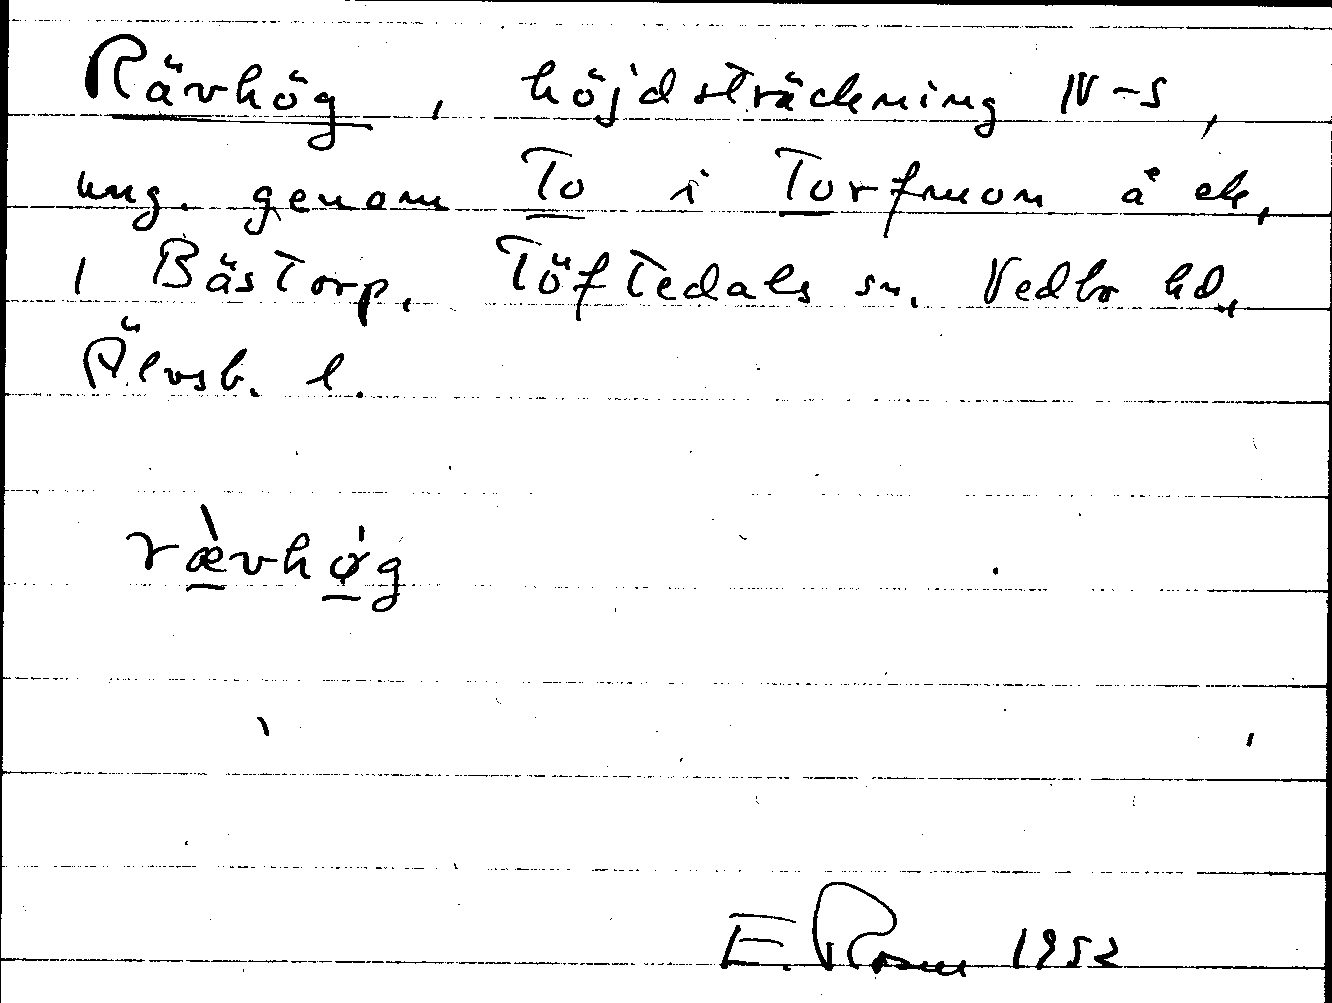 Rävhög, höjdsträckning N-S,
ung. genom To i Torfmon å ek,
1 Bästorp, Töftedals sn. Vedbo hd,
Älvsb. l.
rævhøg
E. Rosen 1952